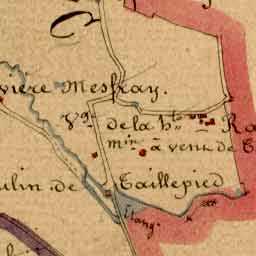 vière Mesfray.
Vge de la hte
min à vent de T
ulin de Taillepied
Etang.